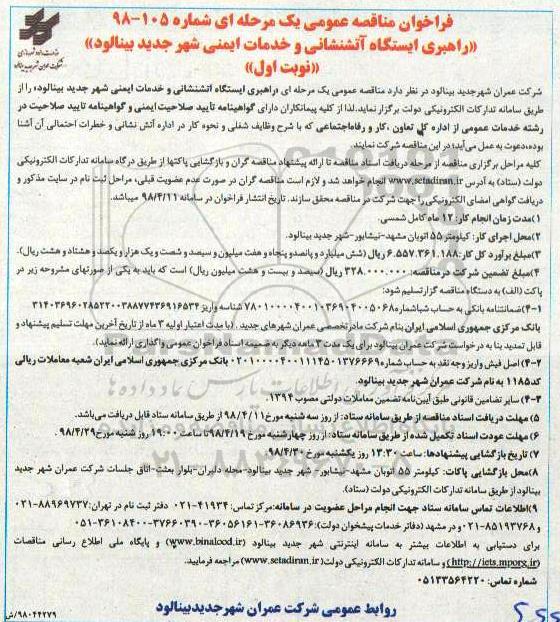 فراخوان مناقصه عمومی یک مرحله ای شماره ۱۰۵-۹۸
«راهبری ایستگاه آتشنشانی و خدمات ایمنی شهر جدید بینالود»
«نوبت اول»
شرکت عمران شهر جدید بینالود
شرکت عمران شهرجدید بینالود در نظر دارد مناقصه عمومی یک مرحله ای «راهبری ایستگاه آتشنشانی و خدمات ایمنی شهر جدید بینالود» را از
طریق سامانه تدارکات الکترونیکی دولت برگزار نماید.لذا از کلیه پیمانکاران دارای گواهینامه تایید صلاحیت ایمنی و گواهینامه تایید صلاحیت در
رشته خدمات عمومی از اداره کل تعاون ،کار و رفاه‌اجتماعی که با شرح وظایف شغلی و نحوه کار در اداره آتش نشانی و خطرات احتمالی آن آشنا
بوده،دعوت به عمل می‌آید؛ در این مناقصه شرکت نمایند.
کلیه مراحل برگزاری مناقصه از مرحله دریافت اسناد مناقصه تا ارائه پیشنهاد مناقصه گران و بازگشایی پاکتها از طریق درگاه سامانه تدارکات الکترونیکی
دولت (ستاد) به آدرس www.setadiran.ir انجام خواهد شد و لازم است مناقصه گران در صورت عدم عضویت قبلی، مراحل ثبت نام در سایت مذکور و
دریافت گواهی امضای الکترونیکی را جهت شرکت در مناقصه محقق سازند. تاریخ انتشار فراخوان در سامانه ۹۸/۴/۱۱ میباشد.
۱)مدت زمان انجام کار: ۱۲ ماه کامل شمسی.
۲)محل اجرای کار: کیلومتر ۵۵ اتوبان مشهد-نیشابور-شهر جدید بینالود.
۳)مبلغ برآورد کل کار: ۶.۵۵۷.۳۶۱.۱۸۸ ریال (شش میلیارد و پانصدو پنجاه و هفت میلیون و سیصد و شصت و یک هزار و یکصد و هشتاد و هشت ریال).
۴)مبلغ تضمین شرکت درمناقصه: ۳۲۸.۰۰۰.۰۰۰ ریال (سیصد و بیست و هشت میلیون ریال) است که باید به یکی از صورتهای مشروحه زیر در
پاکت (الف) به دستگاه مناقصه گزار تسلیم شود:
۴-۱)ضمانتنامه بانکی به حساب شباشماره ۷۸۰۱۰۰۰۰۴۰۰۱۰۳۶۹۰۴۰۰۵۰۶۸ شناسه واریز ۳۱۴۰۳۶۹۶۰۲۸۵۲۲۰۰۳۸۸۷۷۴۳۶۹۱۶۵۳۴
بانک مرکزی جمهوری اسلامی ایران بنام شرکت مادرتخصصی عمران شهرهای جدید . (با مدت اعتبار اولیه ۳ ماه از تاریخ آخرین مهلت تسلیم پیشنهاد و
قابل تمدید بنا به درخواست شرکت عمران بینالود برای یک مدت ۳ ماهه دیگر به ضمیمه اسناد فراخوان عمومی واگذاری ارائه نماید).
۴-۲) اصل فیش واریز وجه نقد به حساب شماره ۰۲۰۱۰۰۰۰۴۰۰۱۱۱۴۵۰۱۳۷۶۶۶۹ بانک مرکزی جمهوری اسلامی ایران شعبه معاملات ریالی
کد۱۱۸۵ به نام شرکت عمران شهر جدید بینالود.
۴-۳) سایر تضامین قانونی طبق آیین‌نامه تضمین معاملات دولتی مصوب ۱۳۹۴.
۵) مهلت دریافت اسناد مناقصه از طریق سامانه ستاد: از روز سه شنبه مورخ ۹۸/۴/۱۱ از طریق سامانه ستاد قابل دریافت می‌باشد.
۶) مهلت عودت اسناد تکمیل شده از طریق سامانه ستاد: از روز چهارشنبه مورخ ۹۸/۴/۱۹ تا ساعت ۱۹:۰۰ روز شنبه مورخ ۹۸/۴/۲۹.
۷) تاریخ بازگشایی پیشنهادها: ساعت ۱۳:۳۰ روز یکشنبه مورخ ۹۸/۴/۳۰.
۸) محل بازگشایی پاکات: کیلومتر ۵۵ اتوبان مشهد-نیشابور- شهر جدید بینالود-محله دلیران-بلوار بعثت-اتاق جلسات شرکت عمران شهر جدید
بینالود از طریق سامانه تدارکات الکترونیکی دولت (ستاد).
۹)اطلاعات تماس سامانه ستاد جهت انجام مراحل عضویت در سامانه:مرکز تماس: ۴۱۹۳۴-۰۲۱ دفتر ثبت نام در تهران: ۸۸۹۶۹۷۳۷-۰۲۱
و ۸۵۱۹۳۷۶۸-۰۲۱ و در مشهد (دفاتر خدمات پیشخوان دولت): ۳۶۰۸۶۹۳۶-۳۶۰۵۶۱۶۱-۳۷۶۶۰۳۹۰-۳۶۱۰۸۴۰۰-۰۵۱
برای دستیابی به اطلاعات بیشتر به سامانه اینترنتی شهر جدید بینالود (www.binalood.ir) و پایگاه ملی اطلاع رسانی مناقصات
(http://iets.mporg.ir) و سامانه تدارکات الکترونیکی دولت(www.setadiran.ir) مراجعه فرمایید.
شماره تماس: ۰۵۱۳۳۵۶۴۲۲۰
روابط عمومی شرکت عمران شهرجدیدبینالود
۹۸۰۴۴۲۷۹/ش